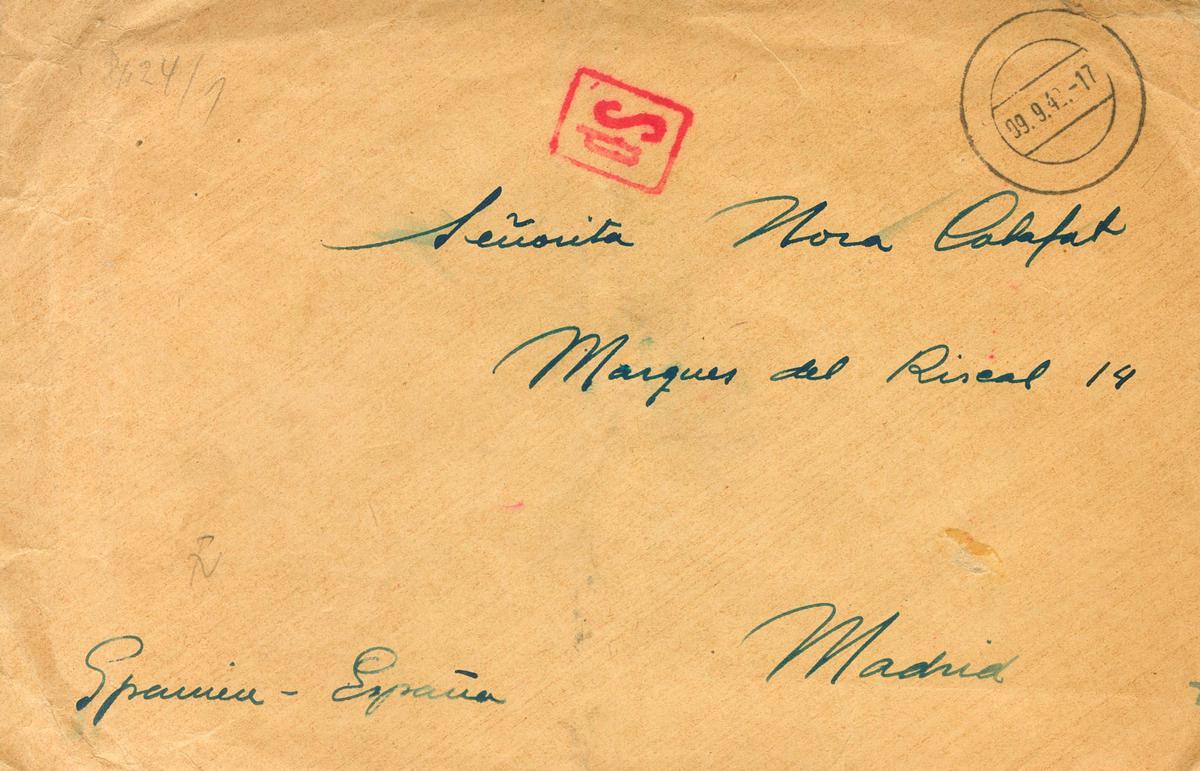 S
09.9.42.-17
Señorita Nora Calafat
Marques del Riscal 14
Madrid
Spanien - España